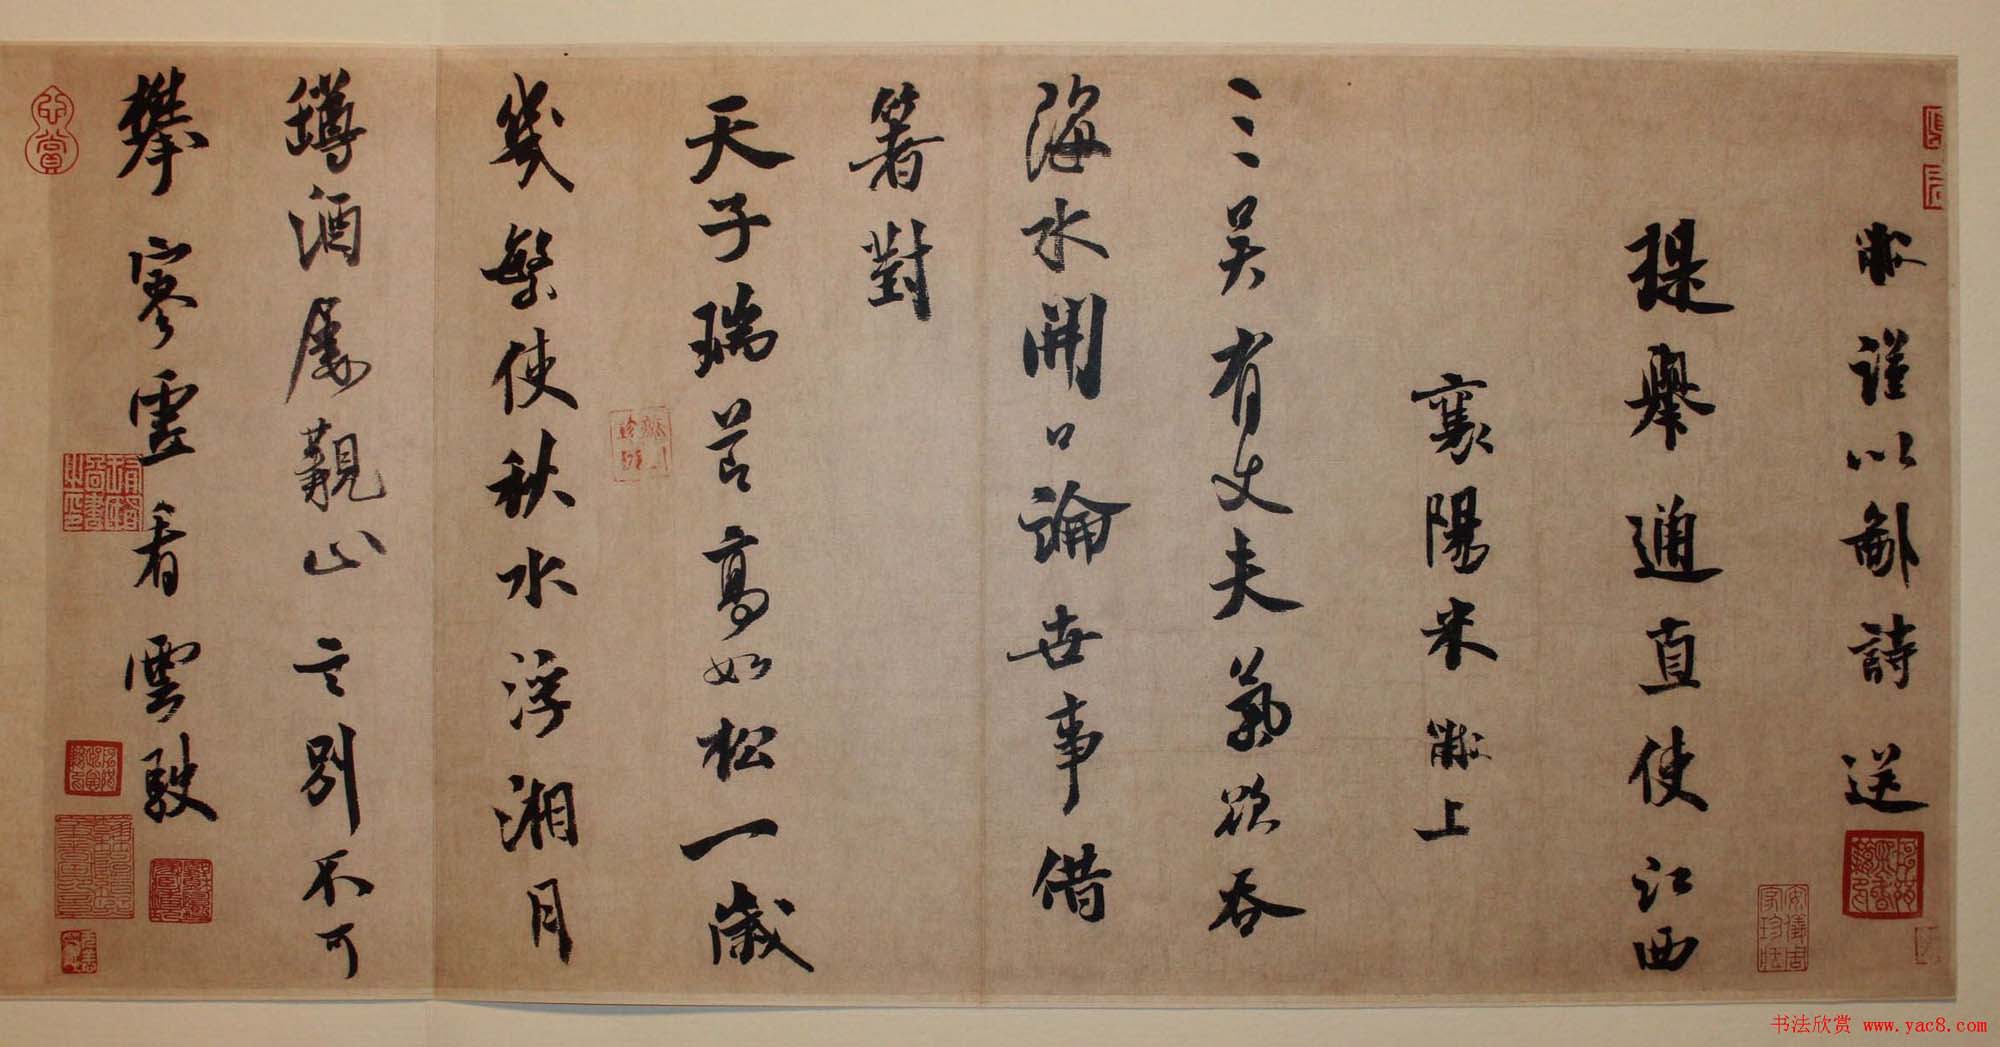 黻謹以鄙詩送
提舉通直使江西
襄陽米黻上
三吳有丈夫氣欲吞
海水開口論世事借
箸對
天子瑞節高如松一歲
幾繁使秋水浮湘月
罇酒屢覯止言別不可
攀寥虛看雲駛
安儀周家珍藏
书法欣赏 www.yac8.com